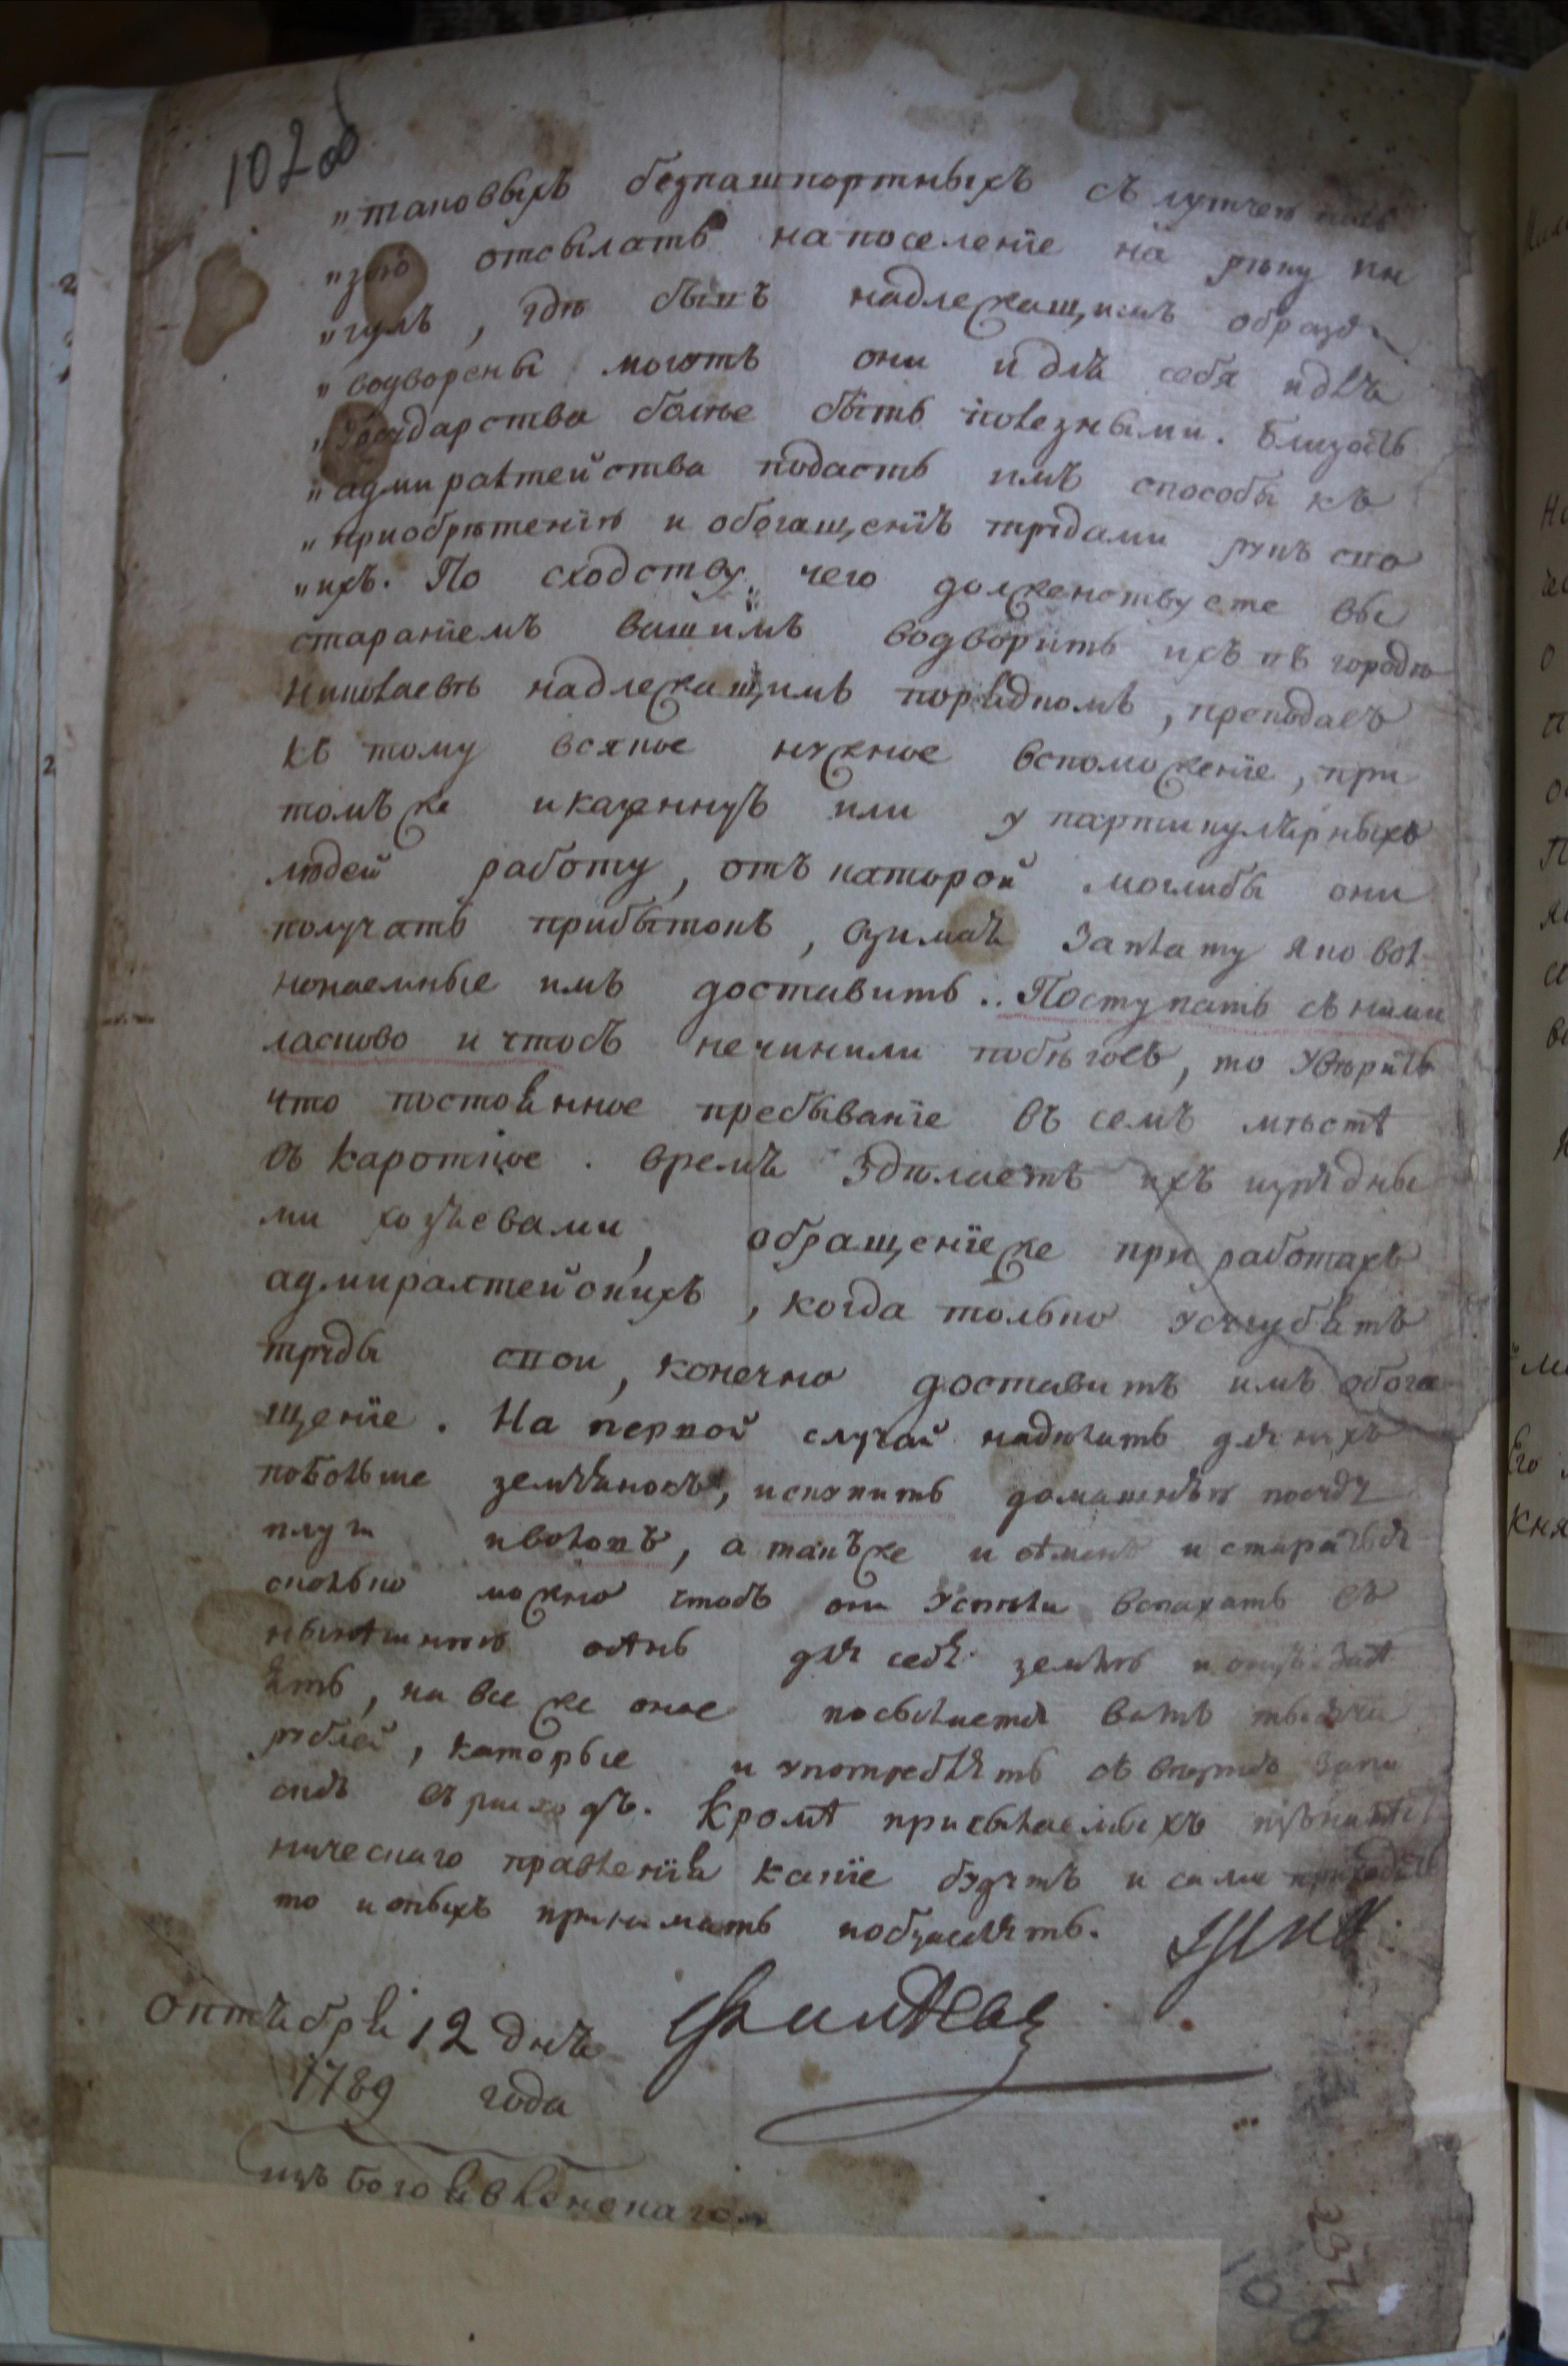 102 об
„таковыхъ безпашпортныхъ съ лутчею поль
„зою отсылать на поселенїе на рѣку ин
„гулъ, гдѣ бывъ надлежащимъ образо
„водворены могутъ они и для себя и для
„Государства болѣе быть полезными. близость
„адмиралтейства подастъ имъ способы къ
„приобрѣтенїю и обогащенїю трудами рукъ сво
„ихъ. По сходству чего долженствуете вы
старанїемъ вашимъ водворить ихъ въ городѣ
николаевѣ надлежащимъ порядкомъ, преподавъ
къ тому всякое нужное вспоможенїе, при
томъ же и казенную или у партикулярныхъ
людей работу, отъ каторой моглибы они
получать прибытокъ, взимая заплату яко вол
нонаемные имъ доставить. Поступать съ ними
ласково и чтобъ нечинили побѣговъ, то увѣрить
что постоянное пребыванїе въ семъ мѣстѣ
въ кароткое время здѣлаетъ ихъ изрядны
ми хозяевами, обращенїе же при работахъ
адмиралтейскихъ, когда только усугубятъ
труды свои, конечно доставитъ имъ обога
щенїе. На первой случай надѣлать для нихъ
поболше землянокъ, искупить домашнюю посуду
плуги и воловъ, а такъ же и сѣменъ и старатся
сколько можно чтобъ они успѣли вспахать въ
нынѣшнюю осѣнь для себя землю и оную засѣ
ять, на все же оное посылается вамъ тысяча
рублей, каторые и употреблять съ запи
скою въ расходъ. Кромѣ присылаемыхъ изъ намѣст
ническаго правленїя какїе будутъ и сами приходить
то и оныхъ принимать и обзаселять.
октября 12 дня
1789 года
изъ богоявленскаго
237